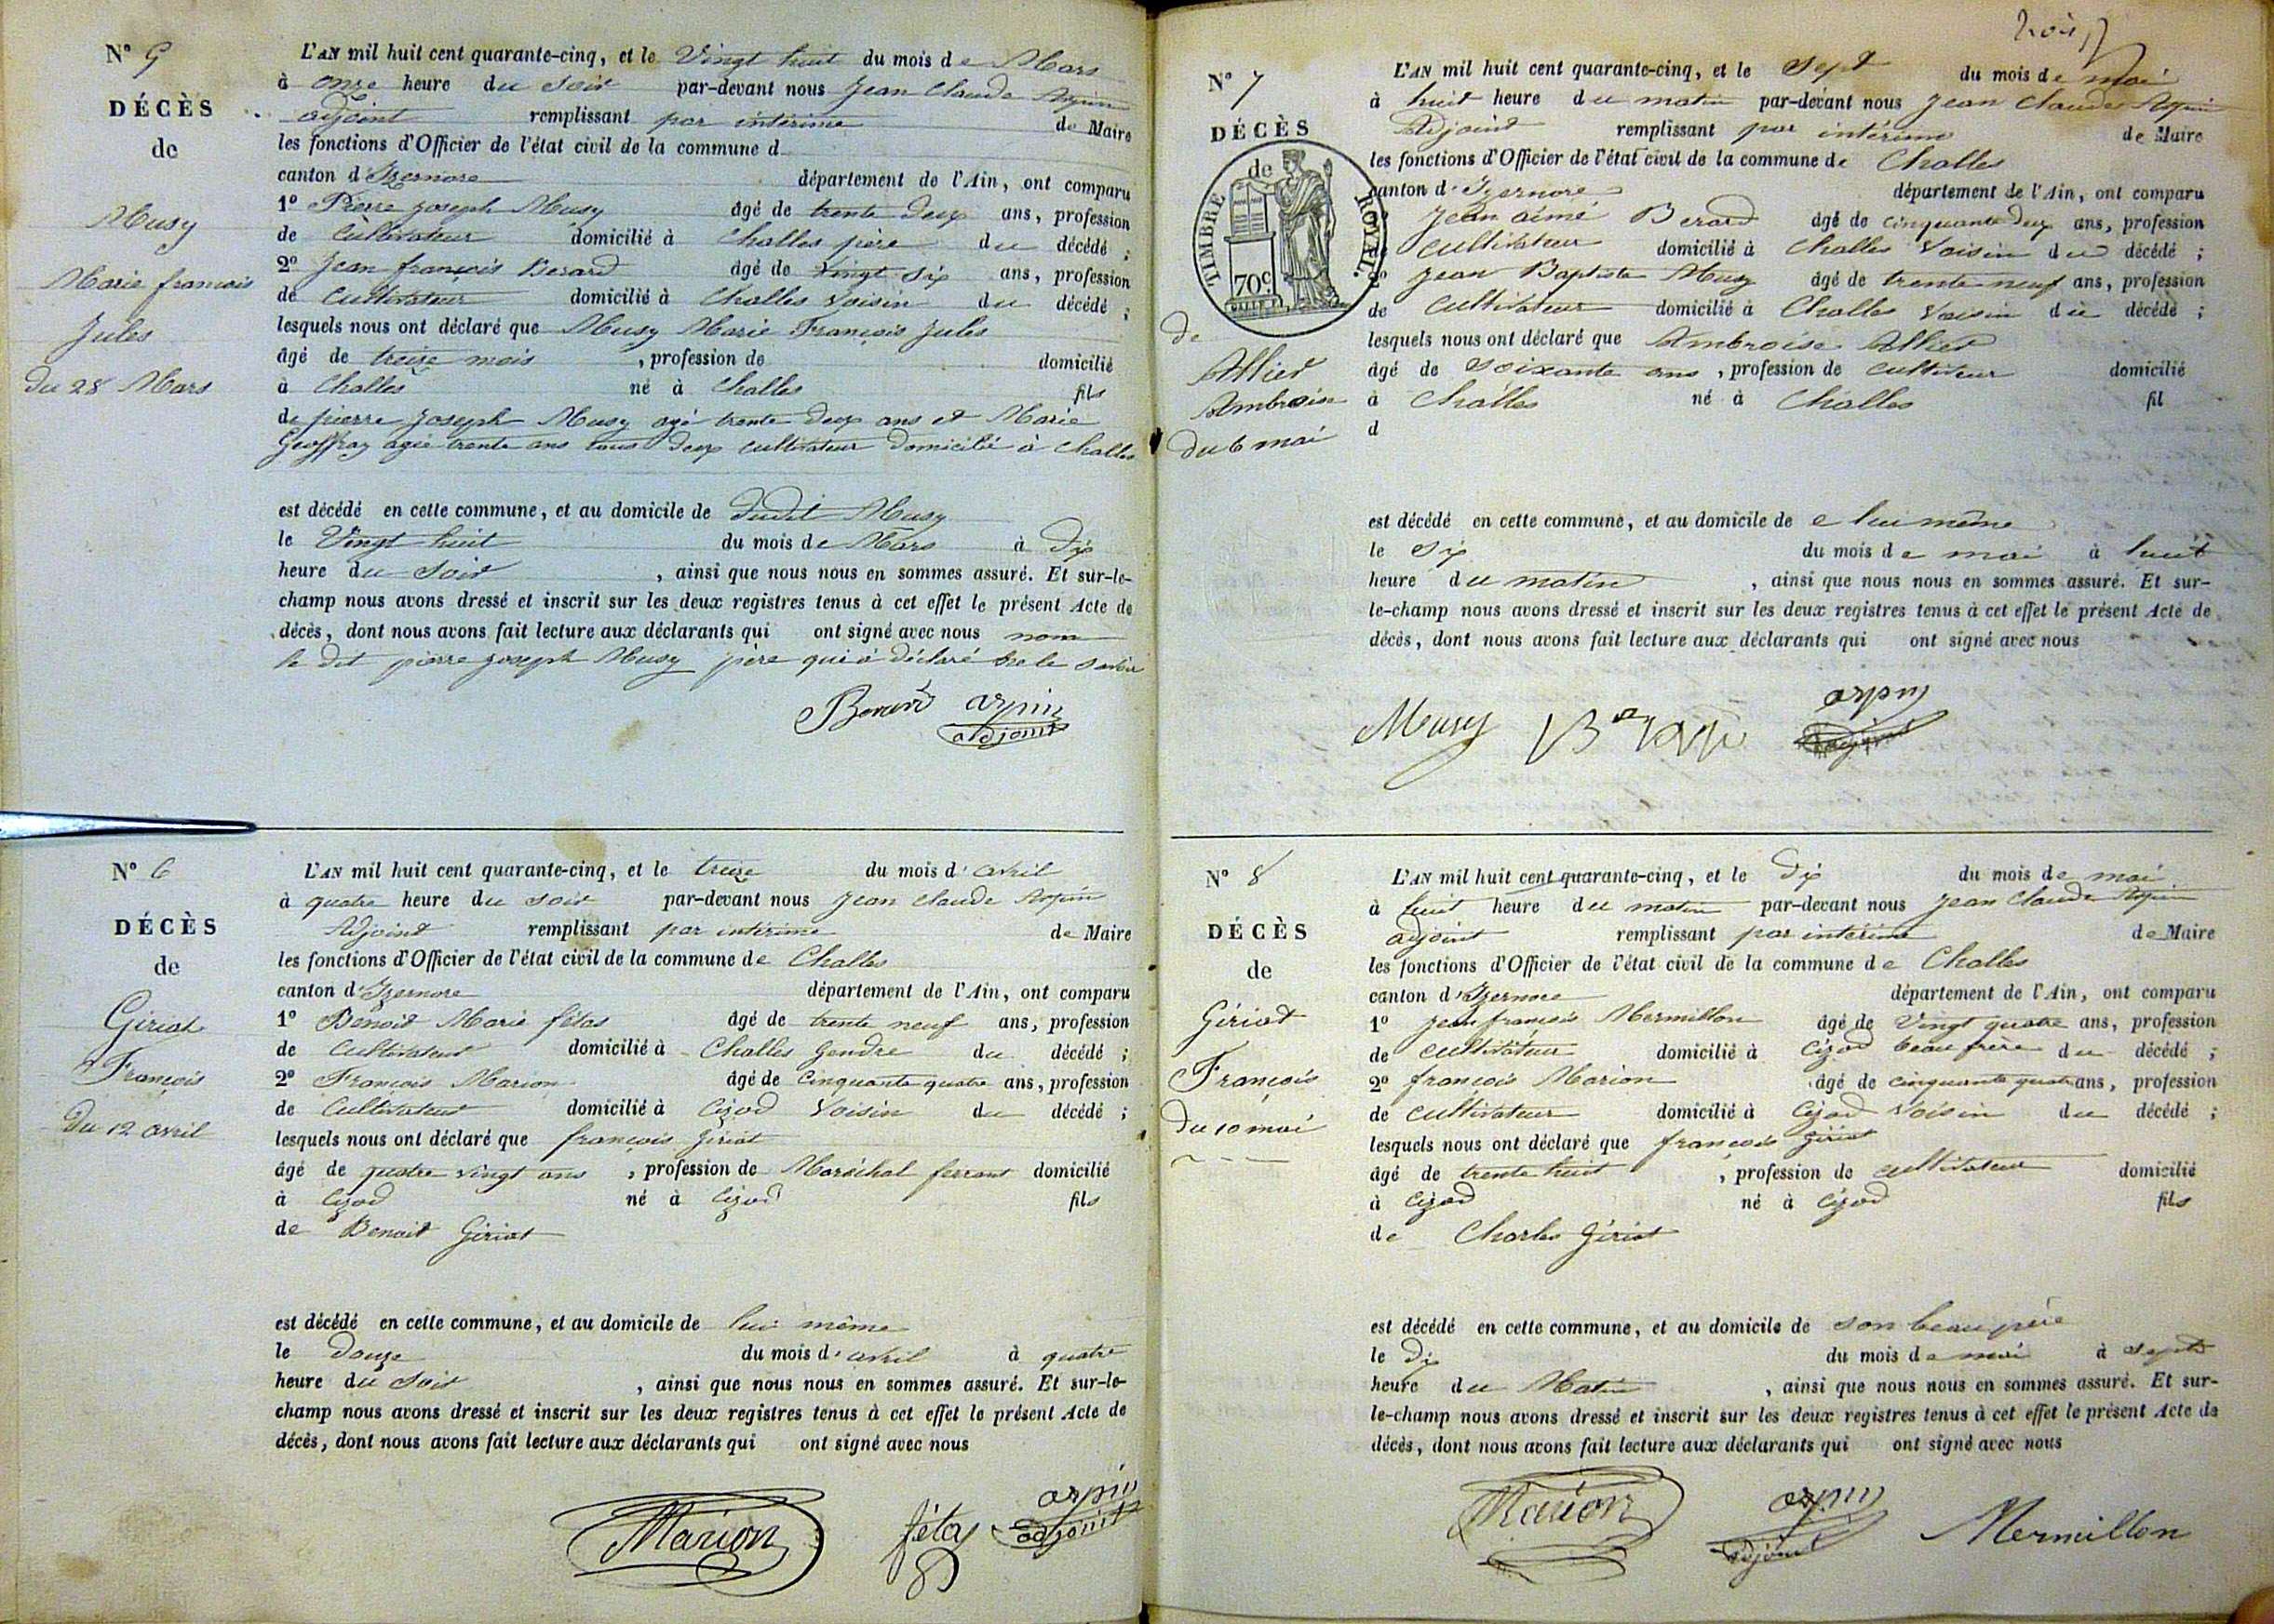 N° 5
DÉCÈS
de
Musy
Marie francois
Jules
du 28 Mars
L'AN mil huit cent quarante-cinq, et le Vingt huit du mois de Mars
à onze heure du soir par-devant nous Jean Claude Arpin
adjoint remplissant par intérime de Maire
les fonctions d'Officier de l'état civil de la commune d
canton d'Izernore département de l'Ain, ont comparu
1° Pierre joseph Musy âgé de trente deux ans, profession
de Cultivateur domicilié à Challes père du décédé ;
2° Jean françois Berard âgé de vingt six ans, profession
de Cultivateur domicilié à Challes voisin du décédé ;
lesquels nous ont déclaré que Musy Marie François Jules
âgé de treize mois , profession de domicilié
à Challes né à Challes fils
de pierre joseph Musy agé trente deux ans et Marie
Geoffray agée trente ans tous deux cultivateur domicilié à Challes
est décédé en cette commune, et au domicile de dudit Musy
le Vingt huit du mois de Mars à dix
heure du Soir , ainsi que nous nous en sommes assuré. Et sur-le-
champ nous avons dressé et inscrit sur les deux registres tenus à cet effet le présent Acte de
décès, dont nous avons fait lecture aux déclarants qui ont signé avec nous non
le dit pierre joseph Musy père qui a déclaré ne le savoir
Berard arpin
adjoint
N° 6
DÉCÈS
de
Giriat
François
du 12 avril
L'AN mil huit cent quarante-cinq, et le treize du mois d'avril
à quatre heure du soir par-devant nous Jean Claude Arpin
Adjoint remplissant par intérime de Maire
les fonctions d'Officier de l'état civil de la commune de Challes
canton d'Izernore département de l'Ain, ont comparu
1° Benoit Marie fétas âgé de trente neuf ans, profession
de Cultivateur domicilié à Challes Gendre du décédé ;
2° François Marion âgé de Cinquante quatre ans, profession
de Cultivateur domicilié à Cizod Voisin du décédé ;
lesquels nous ont déclaré que françois giriat
âgé de quatre vingt ans , profession de Maréchal ferrant domicilié
à Cizod né à Cizod fils
de Benoit Giriat
est décédé en cette commune, et au domicile de lui même
le Douze du mois d'avril à quatre
heure du Soir , ainsi que nous nous en sommes assuré. Et sur-le-
champ nous avons dressé et inscrit sur les deux registres tenus à cet effet le présent Acte de
décès, dont nous avons fait lecture aux déclarants qui ont signé avec nous
Marion fétas arpin
adjoint
trois
N° 7
DÉCÈS
de
TIMBRE ROYAL.
70c.
de
Allier
Ambroise
du 6 mai
L'AN mil huit cent quarante-cinq, et le Sept du mois de mai
à huit heure du matin par-devant nous Jean Claude Arpin
Adjoint remplissant par intérime de Maire
les fonctions d'Officier de l'état civil de la commune de Challes
canton d'Izernore département de l'Ain, ont comparu
Jean aimé Berard âgé de cinquante deux ans, profession
de Cultivateur domicilié à Challes Voisin du décédé ;
2° Jean Baptiste Musy âgé de trente neuf ans, profession
de Cultivateur domicilié à Challes Voisin du décédé ;
lesquels nous ont déclaré que Ambroise Allier
âgé de Soixante ans , profession de Cultiveur domicilié
à Challes né à Challes fil
d
est décédé en cette commune, et au domicile de e lui même
le Six du mois de mai à huit
heure du matin , ainsi que nous nous en sommes assuré. Et sur-
le-champ nous avons dressé et inscrit sur les deux registres tenus à cet effet le présent Acte de
décès, dont nous avons fait lecture aux déclarants qui ont signé avec nous
Musy arpin
adjoint
N° 8
DÉCÈS
de
Giriat
François
du 10 mai
L'AN mil huit cent quarante-cinq, et le Dix du mois de mai
à huit heure du matin par-devant nous Jean Claude Arpin
adjoint remplissant par intérime de Maire
les fonctions d'Officier de l'état civil de la commune de Challes
canton d'Izernore département de l'Ain, ont comparu
1° Jean françois Mermillon âgé de Vingt quatre ans, profession
de cultivateur domicilié à Cizod beau frère du décédé ;
2° françois Marion âgé de cinquante quatre ans, profession
de cultivateur domicilié à Cizod Voisin du décédé ;
lesquels nous ont déclaré que françois Giriat
âgé de trente huit , profession de cultivateur domicilié
à Cizod né à Cizod fils
de Charles Giriat
est décédé en cette commune, et au domicile de son beau père
le Dix du mois de mai à Sept
heure du Matin , ainsi que nous nous en sommes assuré. Et sur-
le-champ nous avons dressé et inscrit sur les deux registres tenus à cet effet le présent Acte de
décès, dont nous avons fait lecture aux déclarants qui ont signé avec nous
Marion arpin Mermillon
adjoint